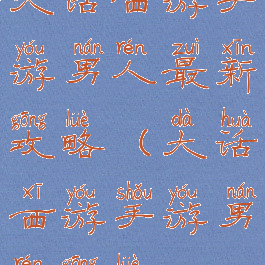 大话西游手
yóu nán rén zuì xīn
游男人最新
gōng lüè dà huà
攻略（大话
xī yóu shǒu yóu nán
西游手游男
rén gōng lüè